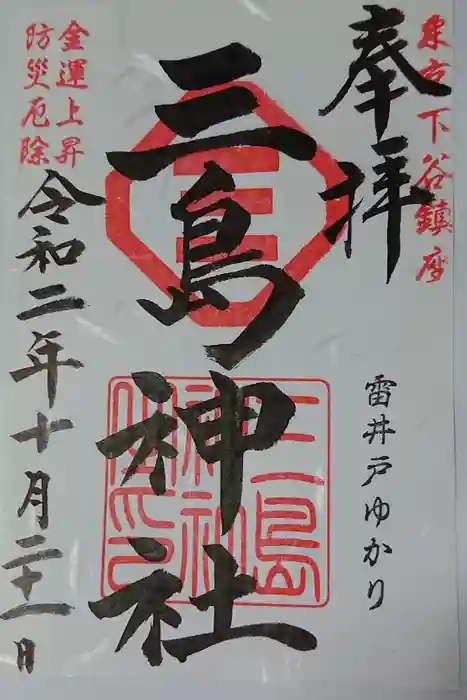 東京下谷鎮座
奉拝
雷井戸ゆかり
三島神社
三島
神社
御印
金運上昇
防災厄除
令和二年十月二十一日